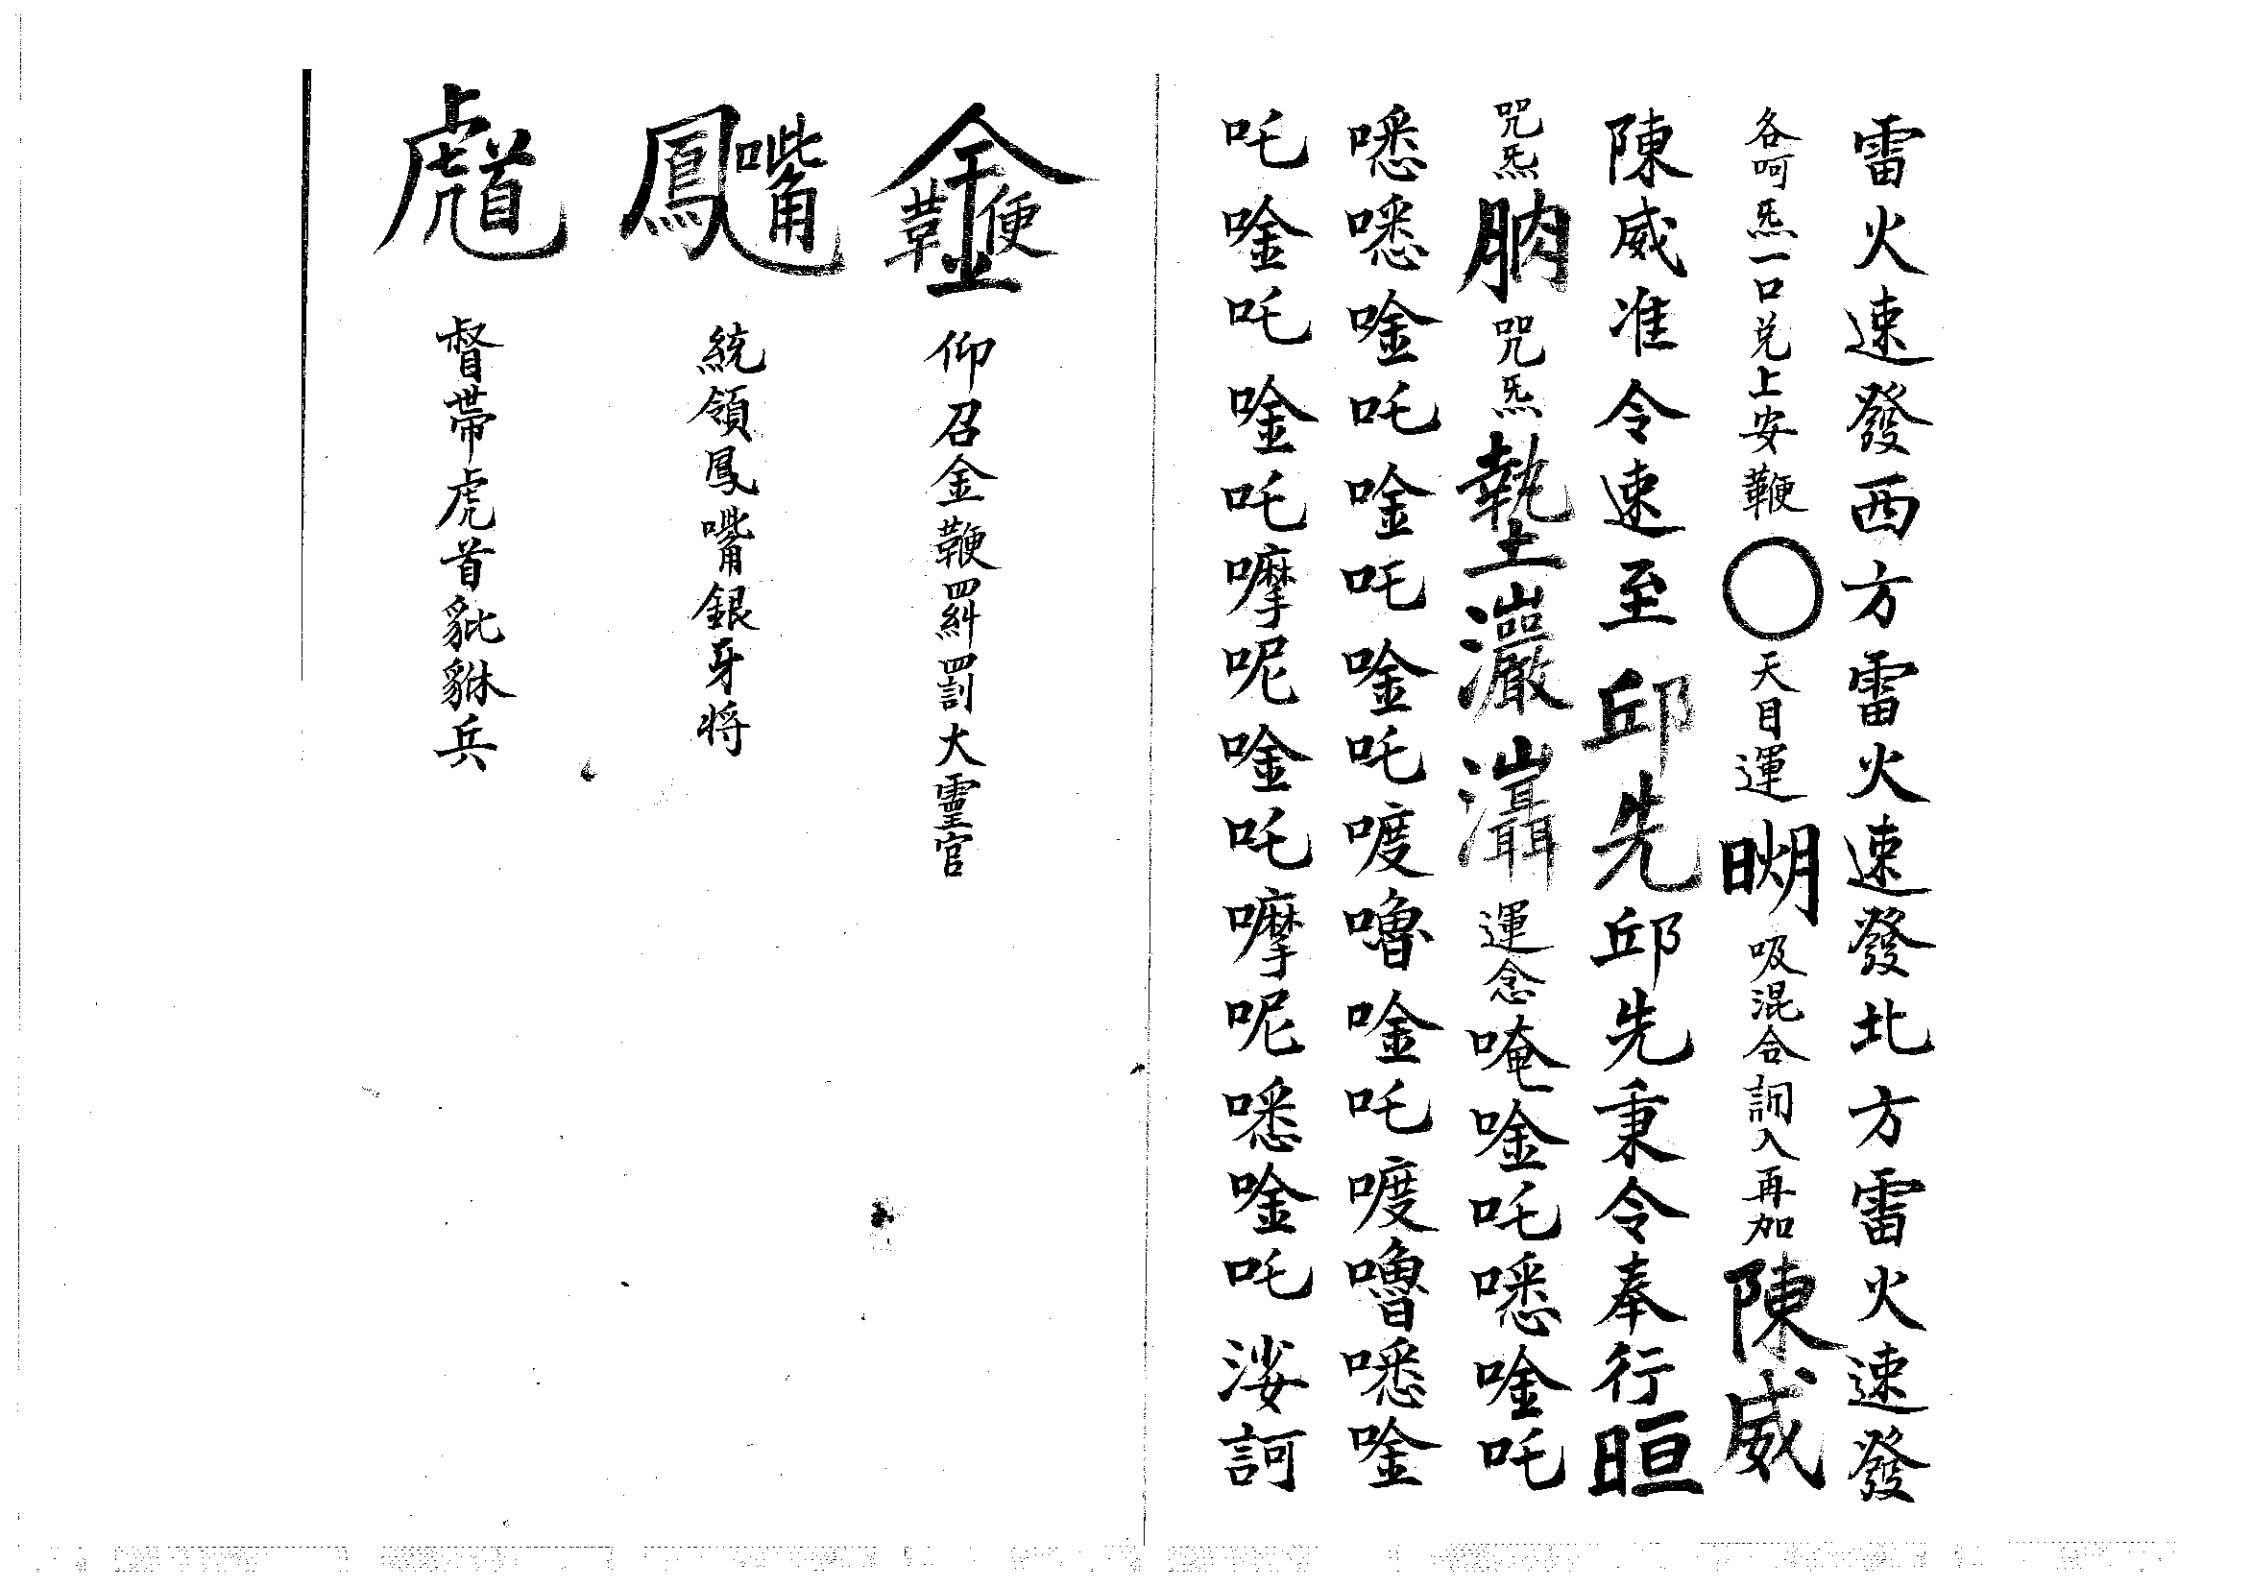 雷火速發西方雷火速發北方雷火速發
各呵炁一口兑上安鞭〇天目運 吸混合訶入再加陳威
陳威准令速至邱先邱先秉令奉行晅
咒炁朒咒炁 運念唵唫吒㗭唫吒
㗭㗭唫吒唫吒唫吒喥嚕唫吒喥嚕㗭唫
吒唫吒唫吒嚤呢唫吒嚤呢㗭唫吒娑訶
金鞭 仰召金鞭糾罰大靈官
鳳嘴 統領鳳嘴銀牙将
虎首 督帶虎首貔貅兵